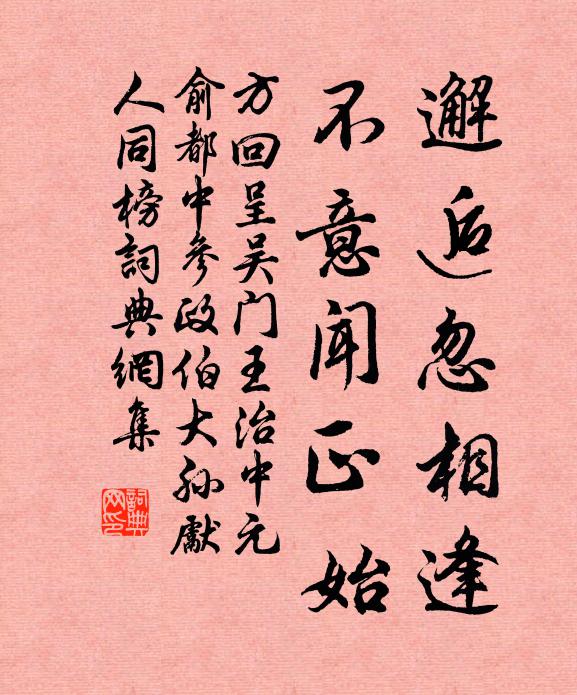 邂逅忽相逢
不意聞正始
方回呈吴门王治中元
俞都中參政伯大孙獻
人同榜詞典網集
詞典网印